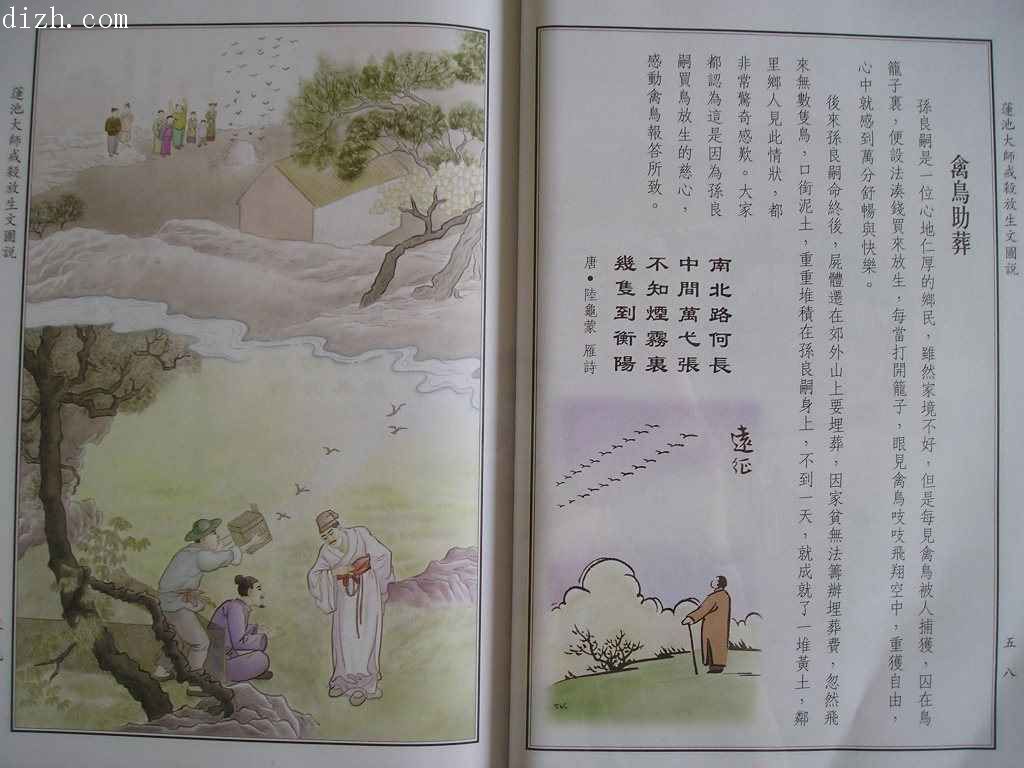 dizh.com
蓮池大師戒殺放生文圖説
五八
禽鳥助葬
孫良嗣是一位心地仁厚的鄉民，雖然家境不好，但是每見禽鳥被人捕獲，囚在鳥
籠子裏，便設法湊錢買來放生，每當打開籠子，眼見禽鳥吱吱飛翔空中，重獲自由，
心中就感到萬分舒暢與快樂。
後來孫良嗣命終後，屍體遷在郊外山上要埋葬，因家貧無法籌辦埋葬費，忽然飛
來無數隻鳥，口銜泥土，重重堆積在孫良嗣身上，不到一天，就成就了一堆黃土，鄰
里鄉人見此情狀，都
非常驚奇感歎。大家
都認為這是因為孫良
嗣買鳥放生的慈心，
感動禽鳥報答所致。
南北路何長
中間萬弋張
不知煙霧裏
幾隻到衡陽
唐•陸龜蒙 雁詩
遠征
蓮池大師戒殺放生文圖説